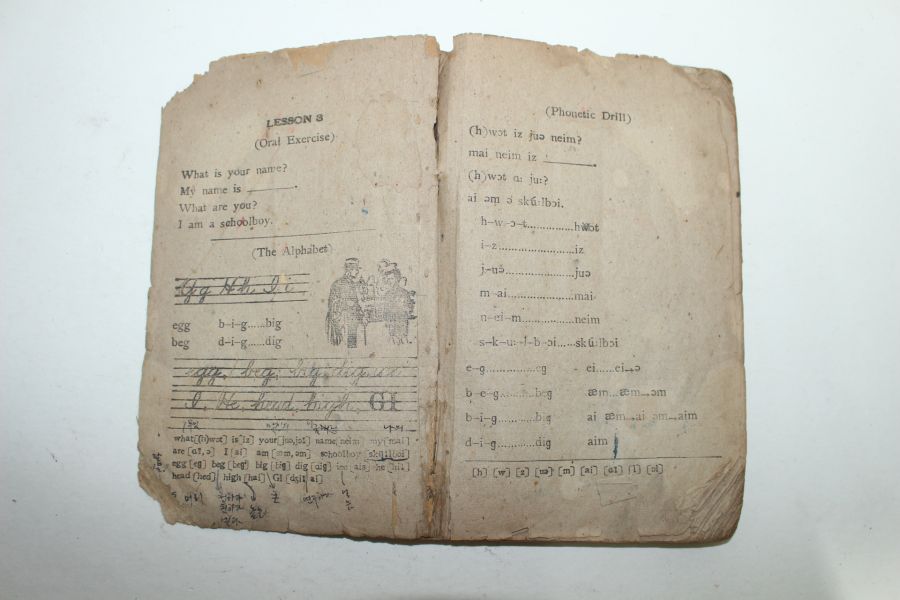 LESSON 3
(Oral Exercise)
What is your name?
My name is ________.
What are you?
I am a schoolboy.
(The Alphabet)
Gg Hh Ii
egg b–i–g......big
beg d–i–g......dig
egg, beg, big, dig, ice
I, He, head, high, GI
what[(h)wɔt] is[iz] your[juə,jɔ:] name[neim] my[mai]
are [ɑ:, ə] I [ai] am [æm, əm] schoolboy [skú:lbɔi]
egg [eg] beg [beg] big [big] dig [dig] ice [ais] he [hi:]
head [hed] high [hai] GI [dʒi: ai]
머리
(Phonetic Drill)
(h)wɔt iz juə neim?
mai neim iz ________.
(h)wɔt ɑ: ju:?
ai əm ə skú:lbɔi.
h–w–ɔ–t..............hwɔt
i–z......................iz
j–uə....................juə
m–ai....................mai
n–ei–m................neim
s–k–u:–l–b–ɔi.....skú:lbɔi
e–g................eg - ei......ei→ə
b–e–g.........beg æm...æm→əm
b–i–g..........big ai æm→ai əm→aim
d–i–g..........dig aim
[h] [w] [z] [uə] [m] [ai] [ɑ:] [l] [ɔi]